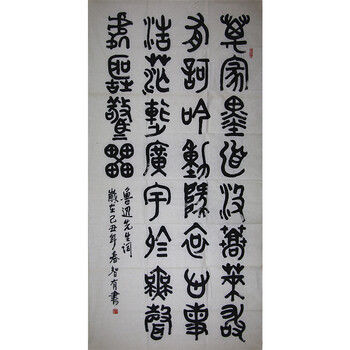 萬家墨面没蒿萊敢
有訶吟動墬哀心事
浩茫連廣宇於無聲
處聽驚雷
魯迅先生詞
歲在己丑年春智有書